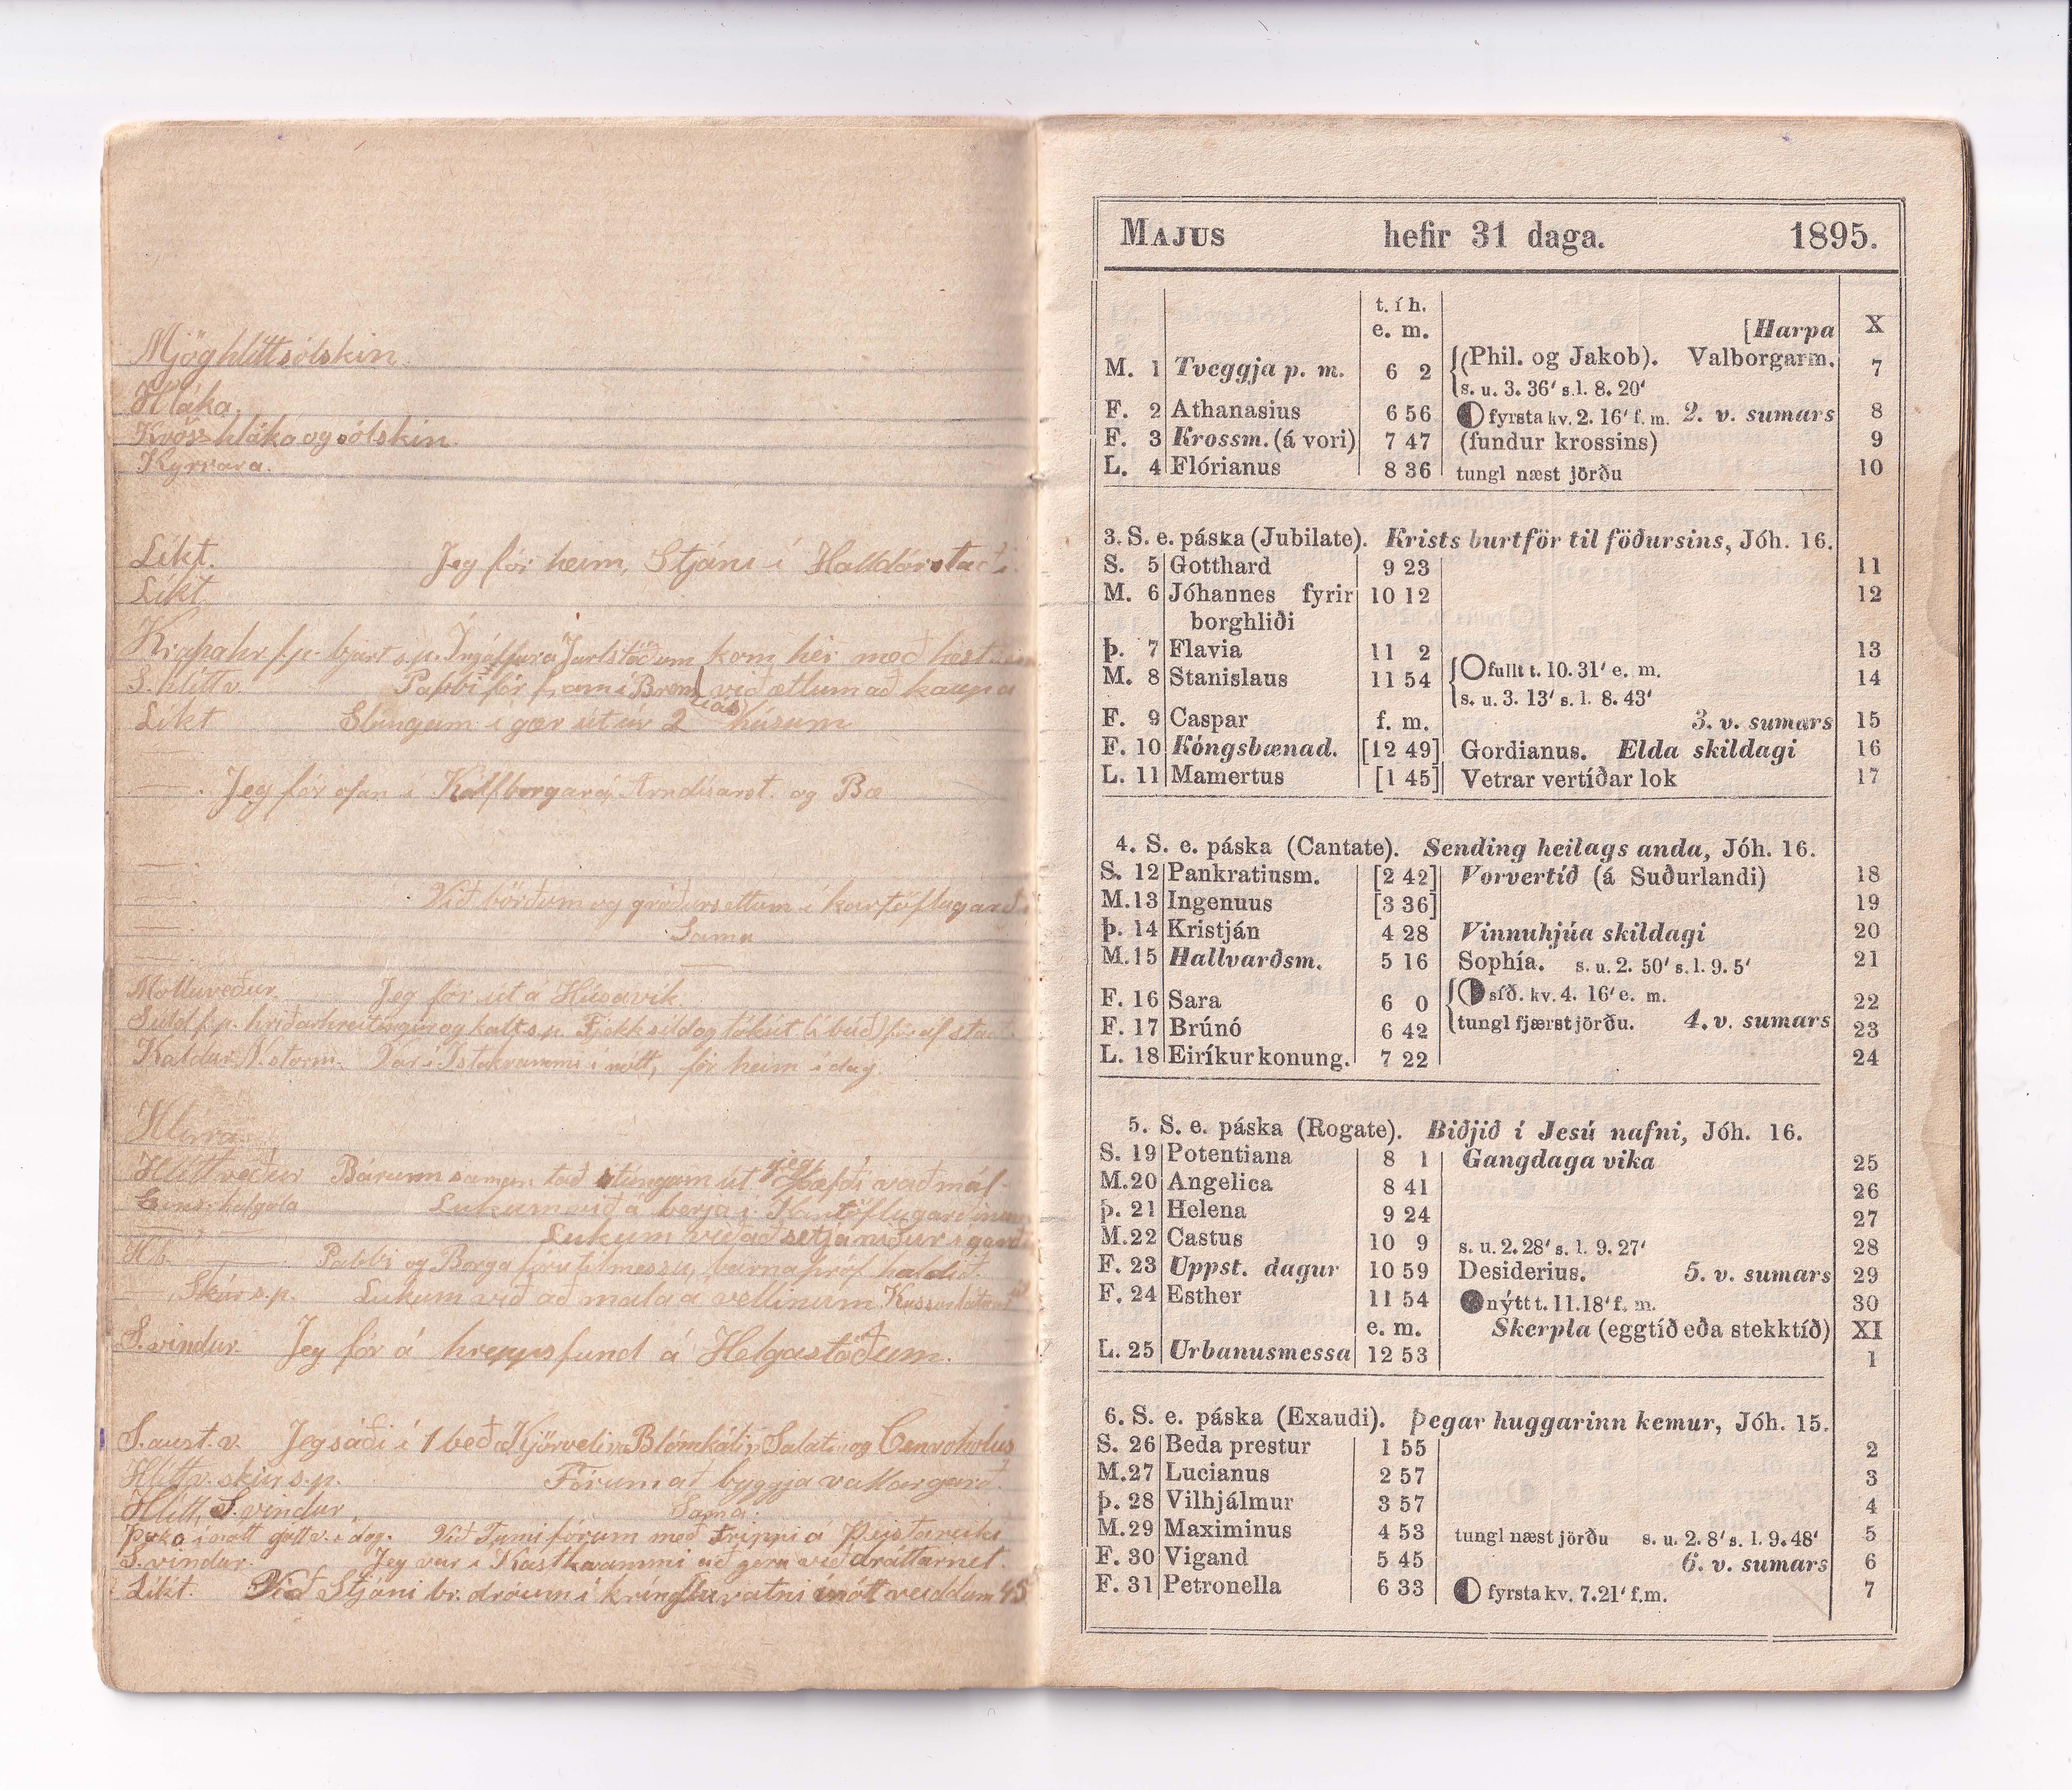 Mjög hlítt sólskin.
Hláka.
hláka og sólskin.
Kyrrara.
Líkt. Jeg fór heim, Stjáni í Halldórstaði.
Líkt
Krapahr. f.p. bjart s.p. frá Jarlstöðum kom hér með hest
S. hlítt v. Pabbi fór fram í við ætlum að kaupa
Líkt Stungum í gær út úr 2 húsum
— . Jeg fór ofan í Kálfborgará, Arndísarst. og Bæ
— .
— . Við börðum og gróðursettum í kartöflugarði
— . Sama
— .
Molluveður. Jeg fór út á Húsavík.
f.p. hríðarhreitingur og kalt s.p. Fjekk síld og tók út (í búð) fór af stað
Kaldur N. storm. Var í nótt, fór heim í dag.
Hlírra
Hlítt veður Bárum saman tað stúngum út jeg þæfði vaðmál
hafgola Lukum við á berja í Kartöflugarðinum
Lukum við að setja niður í garð
Pabbi og Borga fóru til messu, barnapróf haldið.
— Skúr s.p. Lukum við að mala á vellinum
S. vindur. Jeg fór á hreppsfund á Helgastöðum.
S. aust. v. Jeg sáði í 1 beð Kjörveli Blómkáli, Salati og
Hlítt v. skúr s.p. Fórum að byggja vallargarð.
Hlítt, S. vindur Sama.
Þoka í nótt gott v. í dag. Við Tumi fórum með trippi á Þeistareiki
S. vindur. Jeg var í Kasthvammi að gera við dráttarnet.
Líkt. Við Stjáni br. dróum í kringluvatni í nótt veiddum 45
MAJUS hefir 31 daga. 1895.
t. í h.
e. m. [Harpa X
M. 1 Tveggja p. m. 6 2 (Phil. og Jakob). Valborgarm. 7
s. u. 3. 36′ s. l. 8. 20′
F. 2 Athanasius 6 56 fyrsta kv. 2. 16′ f. m. 2. v. sumars 8
F. 3 Krossm. (á vori) 7 47 (fundur krossins) 9
L. 4 Flórianus 8 36 tungl næst jörðu 10
3. S. e. páska (Jubilate). Krists burtför til föðursins, Jóh. 16.
S. 5 Gotthard 9 23 11
M. 6 Jóhannes fyrir 10 12 12
borghliði
Þ. 7 Flavia 11 2 13
fullt t. 10. 31′ e. m.
M. 8 Stanislaus 11 54 14
s. u. 3. 13′ s. l. 8. 43′
F. 9 Caspar f. m. 3. v. sumars 15
F. 10 Kóngsbænad. [12 49] Gordianus. Elda skildagi 16
L. 11 Mamertus [1 45] Vetrar vertíðar lok 17
4. S. e. páska (Cantate). Sending heilags anda, Jóh. 16.
S. 12 Pankratiusm. [2 42] Vorvertíð (á Suðurlandi) 18
M. 13 Ingenuus [3 36] 19
Þ. 14 Kristján 4 28 Vinnuhjúa skildagi 20
M. 15 Hallvarðsm. 5 16 Sophía. s. u. 2. 50′ s. l. 9. 5′ 21
F. 16 Sara 6 0 síð. kv. 4. 16′ e. m. 22
F. 17 Brúnó 6 42 tungl fjærst jörðu. 4. v. sumars 23
L. 18 Eiríkur konung. 7 22 24
5. S. e. páska (Rogate). Biðjið í Jesú nafni, Jóh. 16.
S. 19 Potentiana 8 1 Gangdaga vika 25
M. 20 Angelica 8 41 26
Þ. 21 Helena 9 24 27
M. 22 Castus 10 9 s. u. 2. 28′ s. l. 9. 27′ 28
F. 23 Uppst. dagur 10 59 Desiderius. 5. v. sumars 29
F. 24 Esther 11 54 nýtt t. 11. 18′ f. m. 30
e. m. Skerpla (eggtíð eða stekktíð) XI
L. 25 Urbanusmessa 12 53 1
6. S. e. páska (Exaudi). Þegar huggarinn kemur, Jóh. 15.
S. 26 Beda prestur 1 55 2
M. 27 Lucianus 2 57 3
Þ. 28 Vilhjálmur 3 57 4
M. 29 Maximinus 4 53 tungl næst jörðu s. u. 2. 8′ s. l. 9. 48′ 5
F. 30 Vigand 5 45 6. v. sumars 6
F. 31 Petronella 6 33 fyrsta kv. 7. 21′ f. m. 7